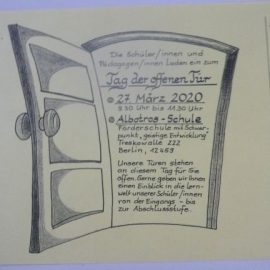 Die Schüler/innen und
Pädagogen/innen laden ein zum
Tag der offenen Tür
27. März 2020
8.30 Uhr bis 11.30 Uhr
Albatros-Schule
Förderschule mit Schwer-
punkt "geistige Entwicklung"
Treskowallee 222
Berlin, 12459
Unsere Türen stehen
an diesem Tag für Sie
offen. Gerne geben wir Ihnen
einen Einblick in die Lern-
welt unserer Schüler/innen
von der Eingangs- bis
zur Abschlussstufe.